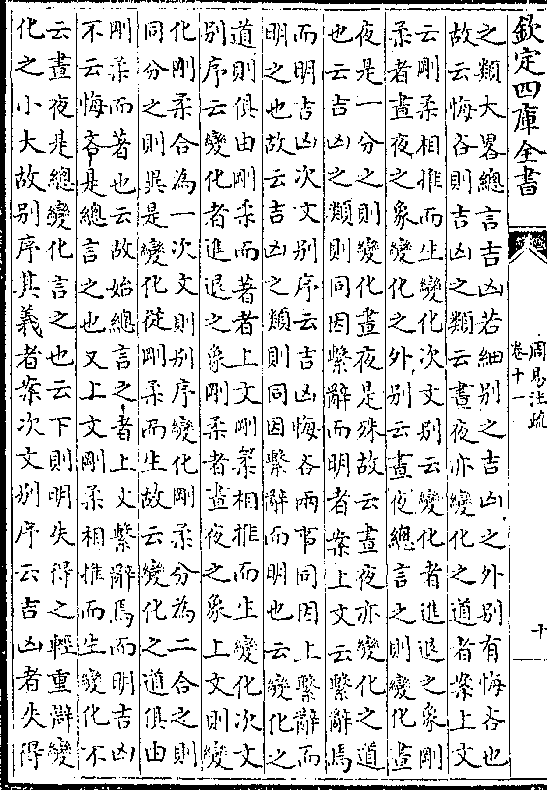 欽定四庫全書
周易注疏
卷十一
十
之類大畧總言吉凶若細别之吉凶之外别有悔吝也
故云悔吝則吉凶之類云晝夜亦變化之道者案上文
云剛柔相推而生變化次文别云變化者進退之象剛
柔者晝夜之象變化之外别云晝夜總言之則變化晝
夜是一分之則變化晝夜是殊故云晝夜亦變化之道
也云吉凶之類則同因繫辭而明者案上文云繫辭焉
而明吉凶次文别序云吉凶悔吝兩事同因上繫辭而
明之也故云吉凶之類則同因繫辭而明也云變化之
道則俱由剛柔而著者上文剛柔相推而生變化次文
别序云變化者進退之象剛柔者晝夜之象上文則變
化剛柔合為一次文則别序變化剛柔分為二合之則
同分之則異是變化從剛柔而生故云變化之道俱由
剛柔而著也云故始總言之者上文繫辭焉而明吉凶
不云悔吝是總言之也又上文剛柔相推而生變化不
云晝夜是總變化言之也云下則明失得之輕重辯變
化之小大故别序其義者案次文别序云吉凶者失得